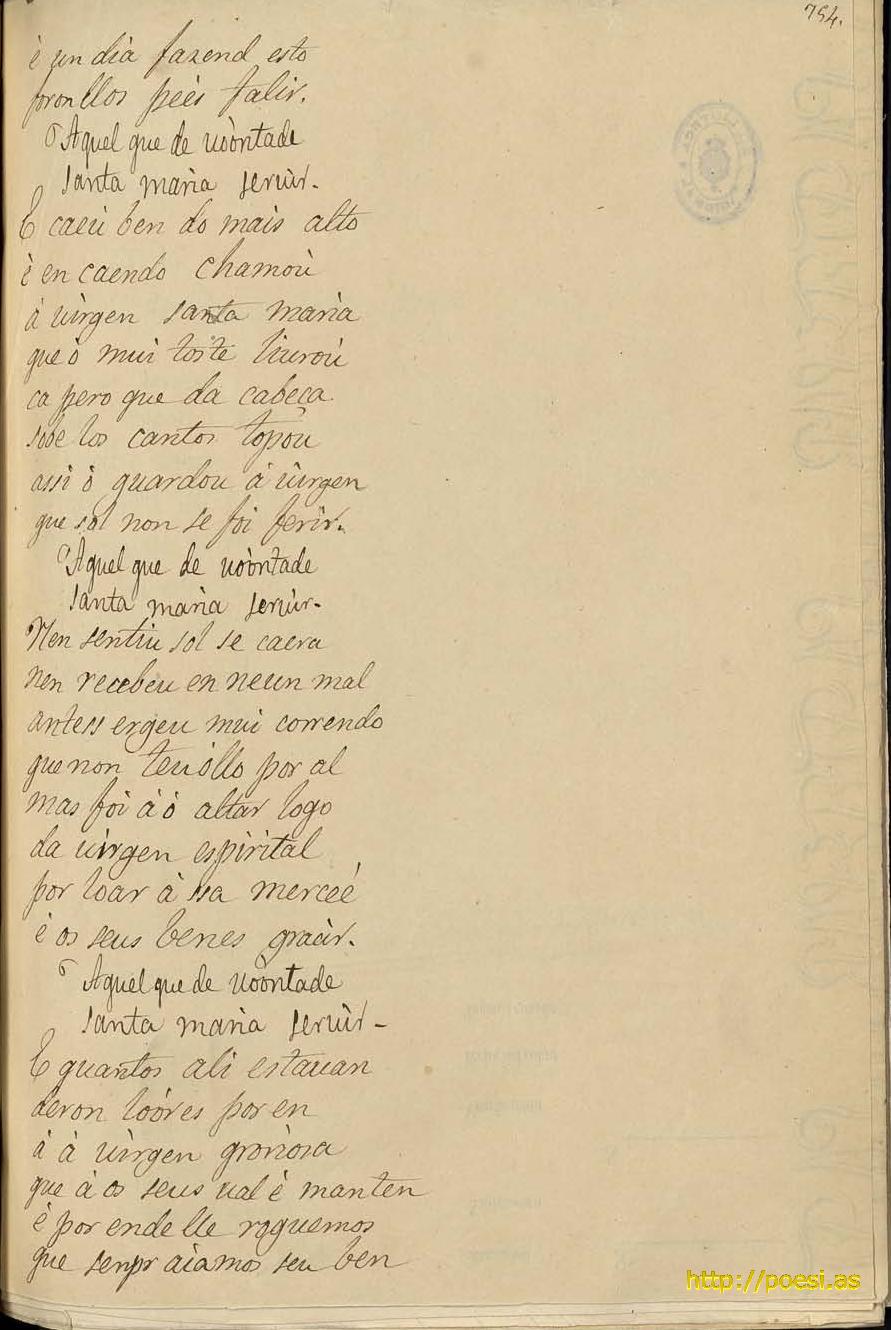 754.
è un dia fazend esto
foronllos pees falir.
Aquel que de uoòntade
santa maria seruìr.
E caeu ben do mais alto
è en caendo chamoù
à uìrgen santa maria
que ò mui toste liuroù
ca pero que da cabeça
sobe los cantos topou
assi ò guardou á ùirgen
que sol non se foi ferir.
Aquel que de uoòntade
santa maria seruìr.
Nen sentiu sol se caera
nen recebeu en neun mal
antess ergeu mui correndo
que non teuóllo por al
mas foi á ó altar logo
da uìrgen espirital
por loar à ssa merceé
è os seus benes graçir.
Aquel que de uoòntade
santa maria seruìr-
E quantos ali estauan
deron loóres por en
à à uìrgen groriosa
que à os seus ual è manten
è por ende lle roguemos
que senpr aiamos seu ben
http://poesi.as